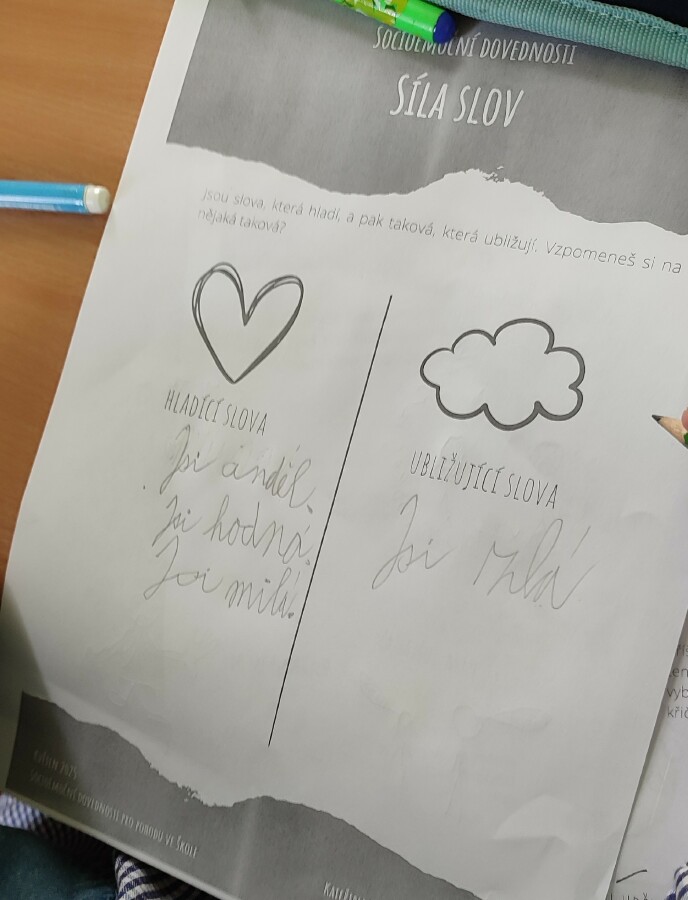 Socioemoční dovednosti
Síla slov
jsou slova, která hladí, a pak taková, která ubližují. Vzpomeneš si na
nějaká taková?
Hladící slova
Jsi anděl.
Jsi hodná.
Jsi milá.
Ubližující slova
Jsi zlá
Květen 2025
Socioemoční dovednosti pro pohodu ve škole